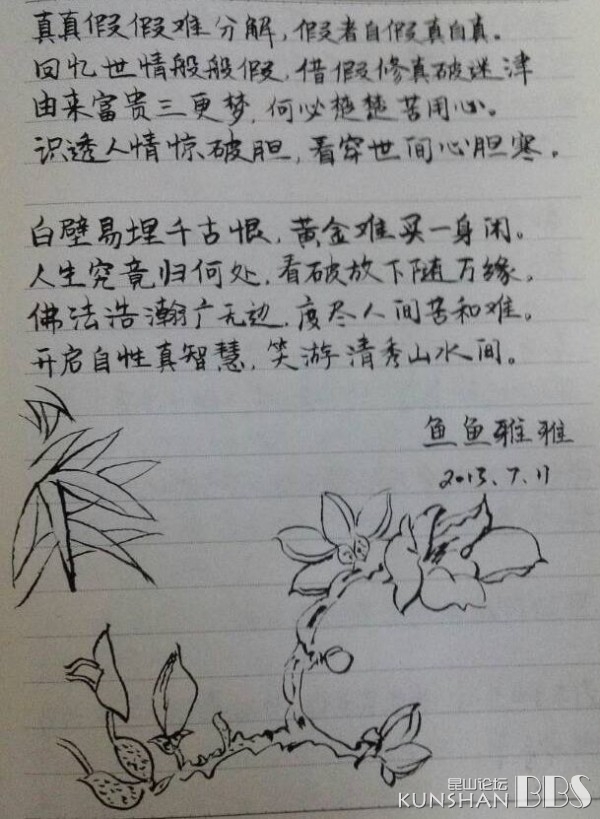 真真假假难分解，假者自假真自真。
回忆世情般般假，借假修真破迷津
由来富贵三更梦，何必楚楚苦用心。
识透人情惊破胆，看穿世间心胆寒。
白壁易埋千古恨，黄金难买一身闲。
人生究竟归何处，看破放下随万缘。
佛法浩瀚广无边，度尽人间苦和难。
开启自性真智慧，笑游清秀山水间。
鱼鱼雅雅
2013.7.11
昆山论坛
KUNSHAN BBS